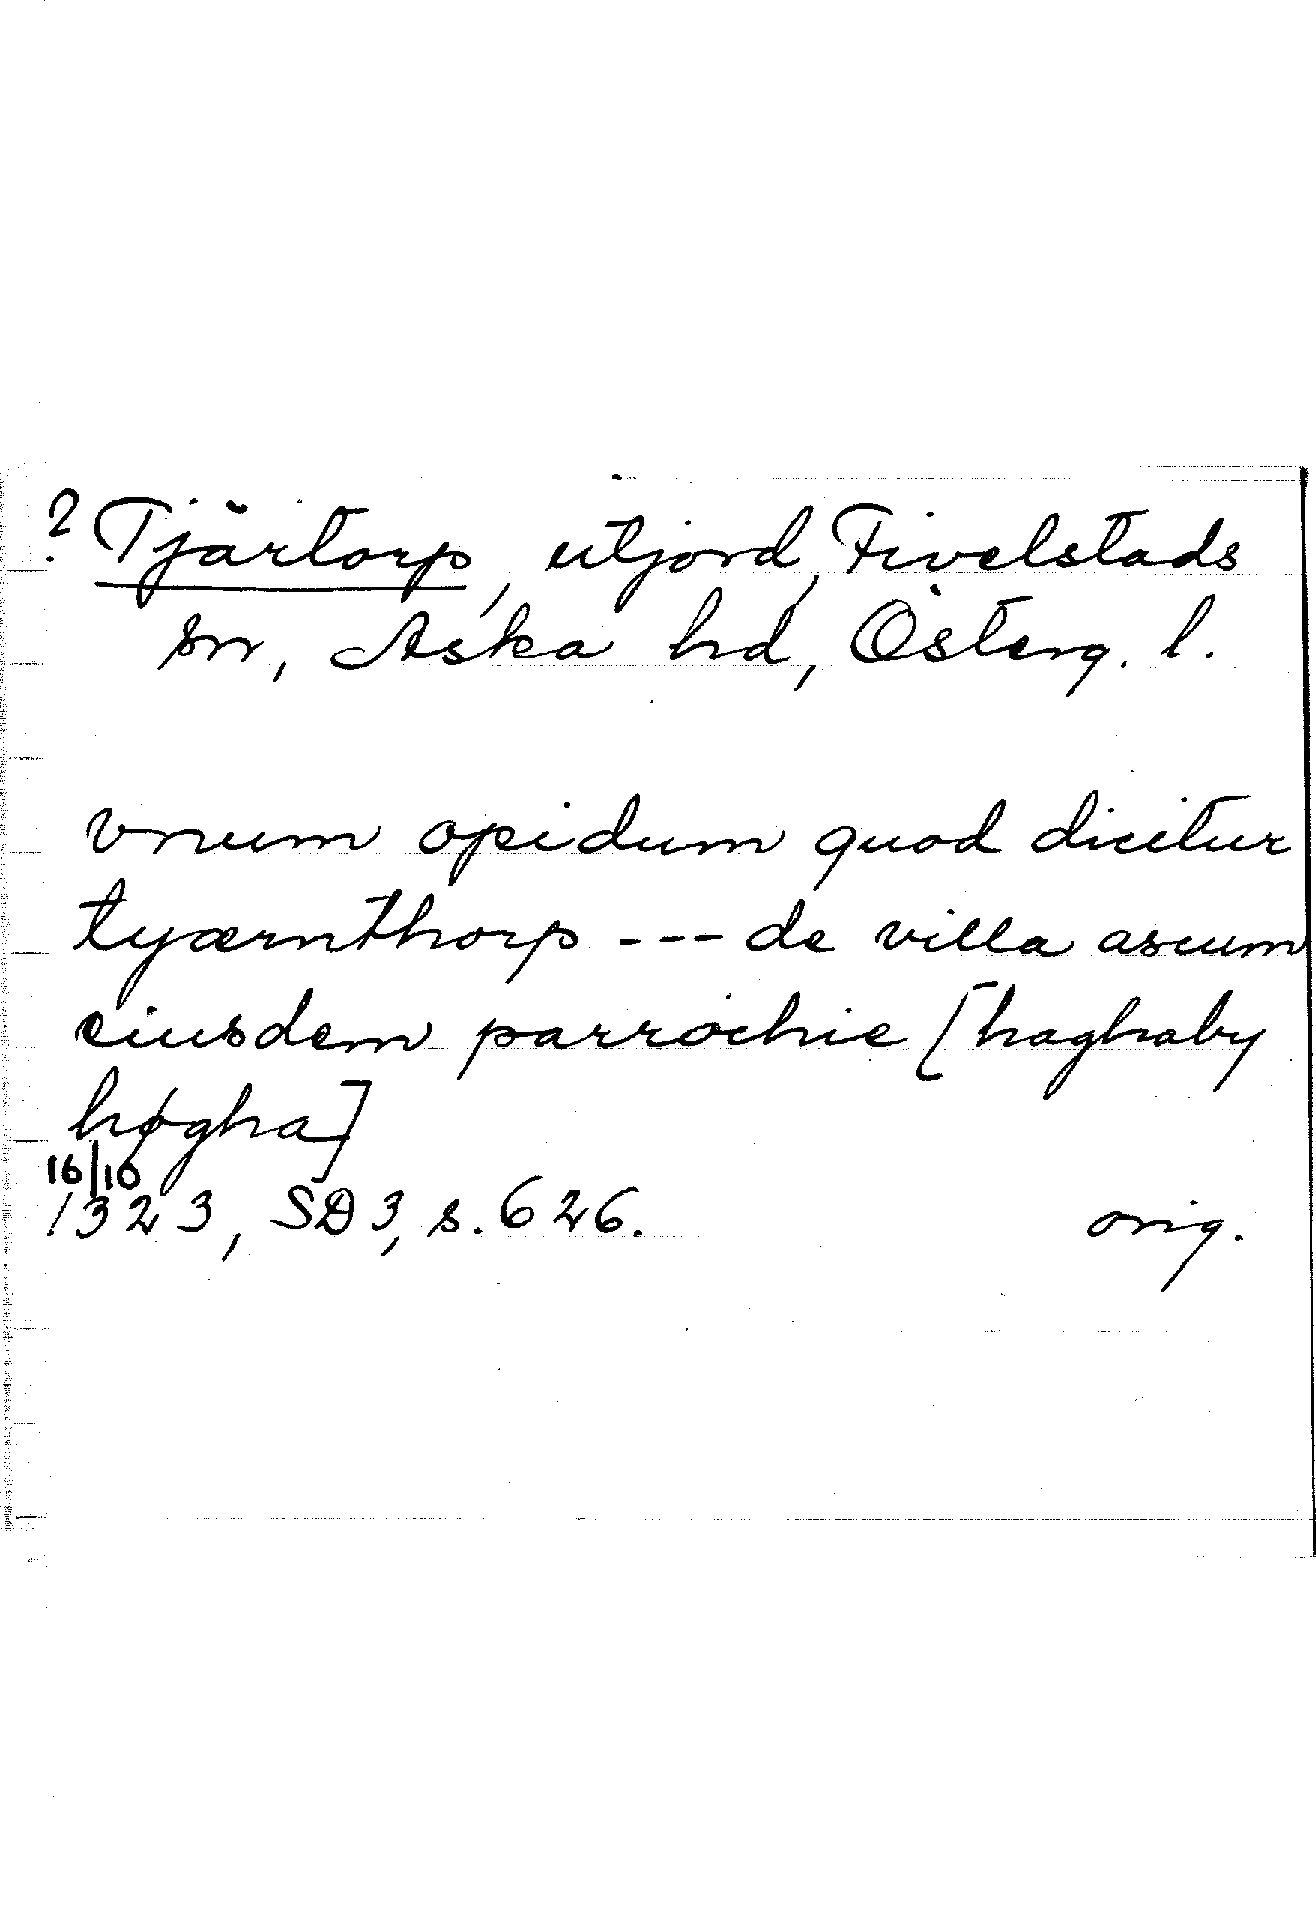 ? Tjärtorp, utjord, Fivelstads
sn, Aska hd, Österg. l.
vnum opidum quod dicitur
tyærnthorp --- de villa ascum
eiusdem parrochie [haghaby
høgha]
16/10
1323, SD 3, s. 626. orig.